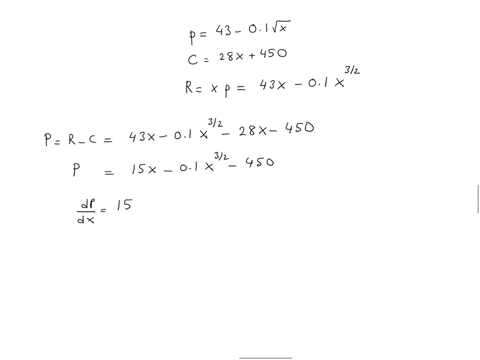 p = 43 - 0.1√x
C = 28x + 450
R = x p = 43x - 0.1 x^3/2
P = R - C = 43x - 0.1 x^3/2 - 28x - 450
P = 15x - 0.1 x^3/2 - 450
dP/dx = 15